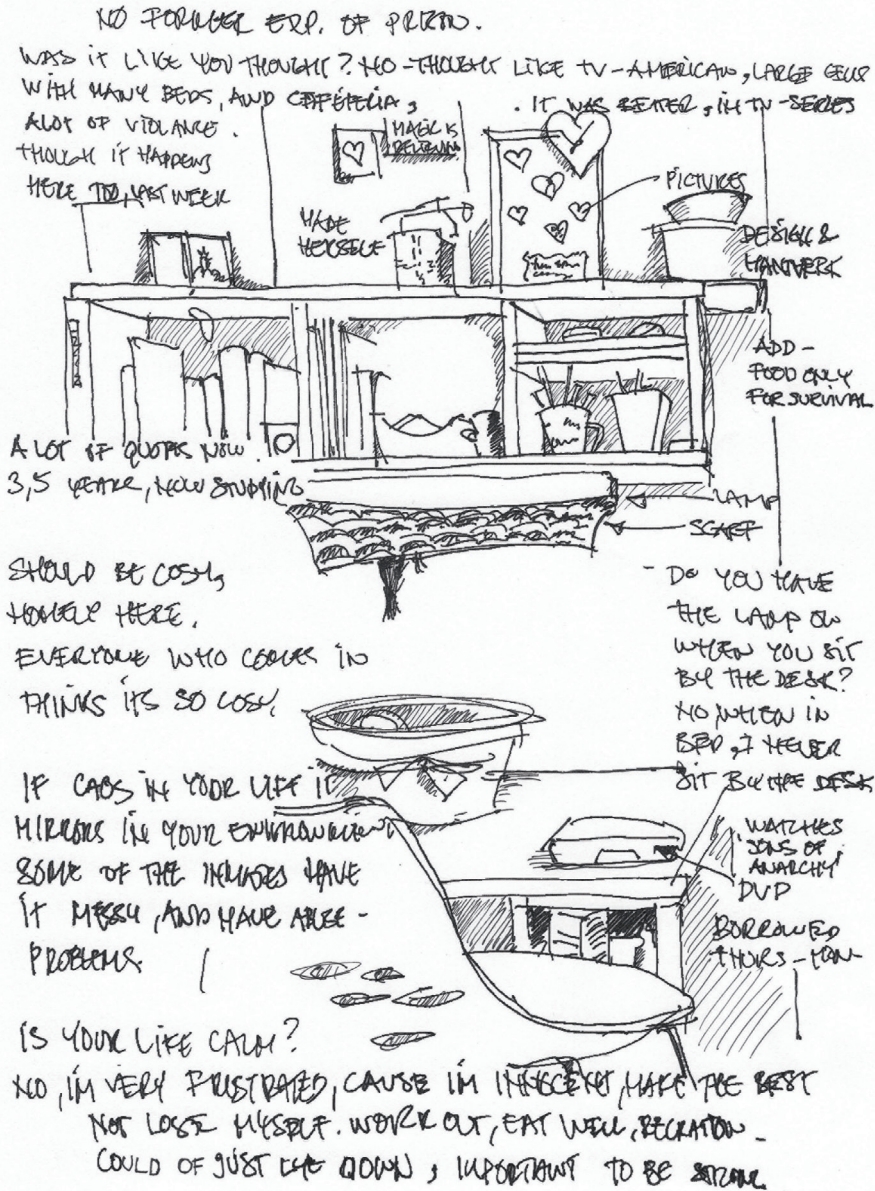 NO FORMER EXP. OF PRISON.
WAS IT LIKE YOU THOUGHT? NO - THOUGHT LIKE TV - AMERICAN, LARGE CELLS
WITH MANY BEDS, AND CAFETERIA,
. IT WAS BETTER, IN TV-SERIES
ALOT OF VIOLANCE.
THOUGH IT HAPPENS
HERE TOO, LAST WEEK
MAGIC IS
PICTURES
MADE
HERSELF
DESIGN &
HANTVERK
ADD -
FOOD ONLY
FOR SURVIVAL
A LOT OF QUOTES NOW.
3,5 YEARS, NOW STUDYING
LAMP
SCARF
SHOULD BE COSY,
HOMELY HERE.
EVERYONE WHO COMES IN
THINKS ITS SO COSY,
- DO YOU HAVE
THE LAMP ON
WHEN YOU SIT
BY THE DESK?
NO, WHEN IN
BED, I NEVER
SIT BY THE DESK
IF CAOS IN YOUR LIFE IT
MIRRORS IN YOUR ENVIRONMENT
SOME OF THE INMATES HAVE
IT MESSY, AND HAVE
PROBLEMS.
WATCHES
'SONS OF
ANARCHY'
DVD
BORROWED
THURS - MON
IS YOUR LIFE CALM?
NO, IM VERY FRUSTRATED, CAUSE IM INNOCENT, MAKE THE BEST
NOT LOSE MYSELF. WORK OUT, EAT WELL,
COULD OF JUST LIE DOWN, IMPORTANT TO BE STRONG